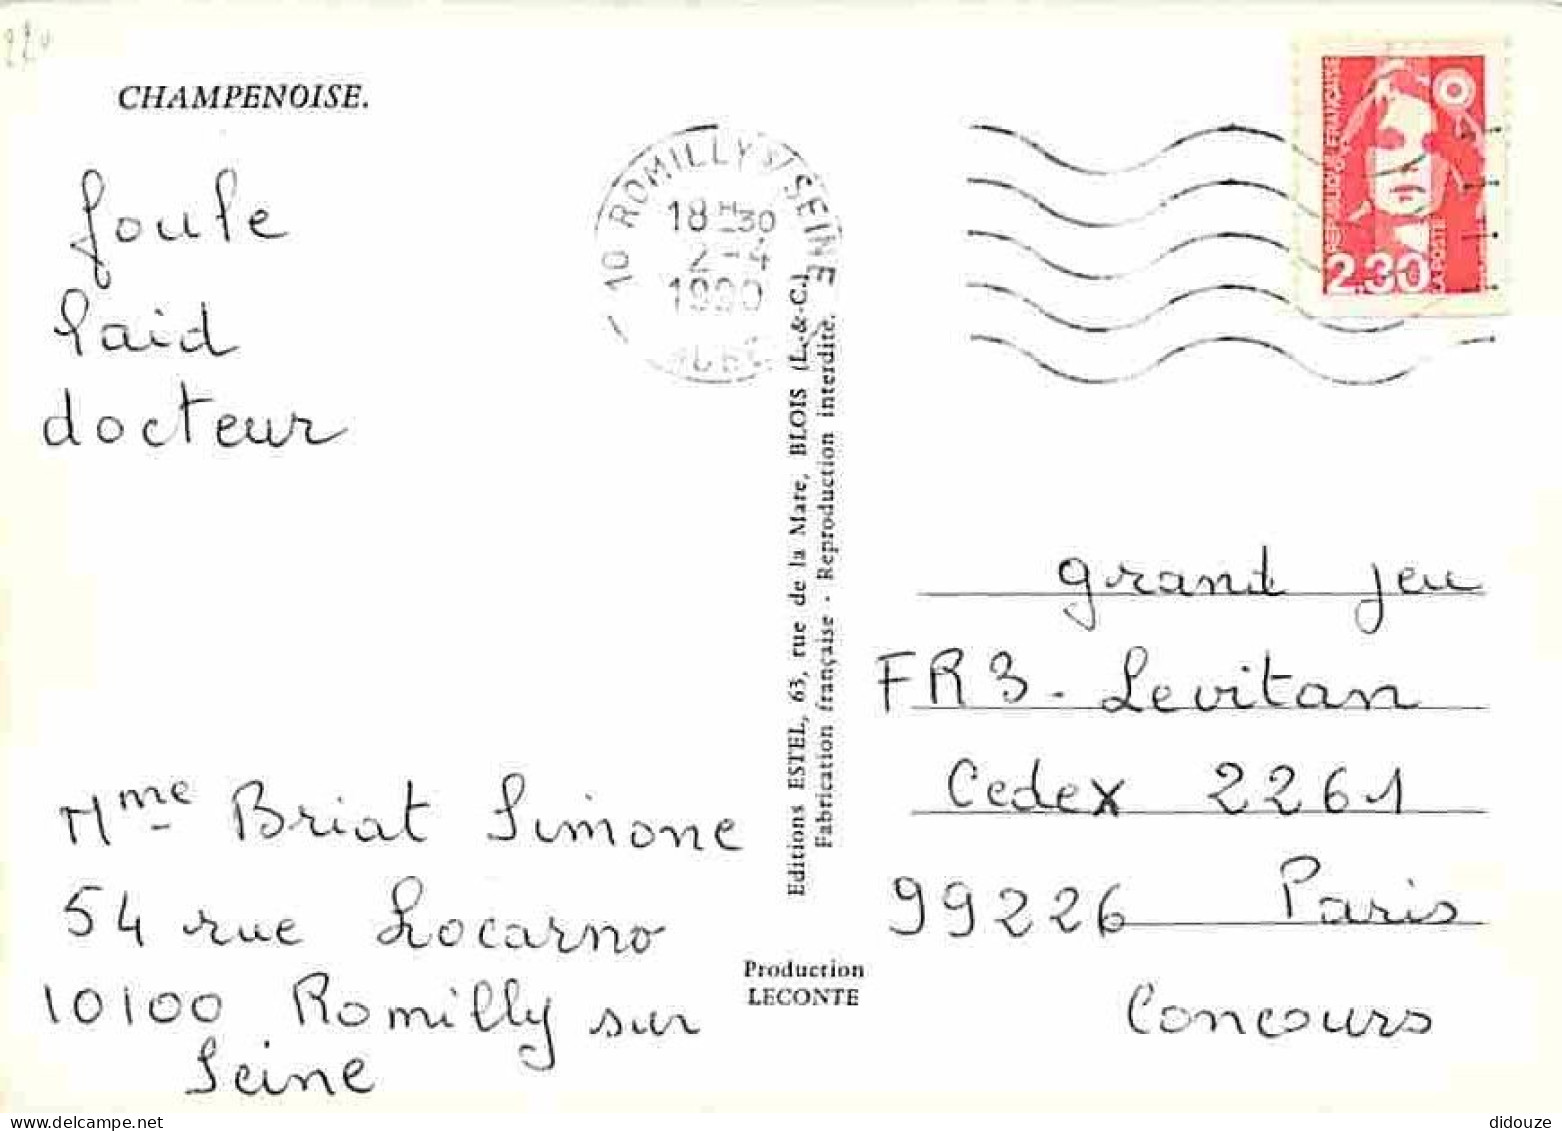 220
CHAMPENOISE.
foule
laid
docteur
Mme Briat Simone
54 rue Locarno
10100 Romilly sur
Seine
10 ROMILLY S/ SEINE
18H30
2-4
1990
AUBE
Editions ESTEL, 63, rue de la Mare, BLOIS (L.-&-C.)
Fabrication française - Reproduction interdite.
Production
LECONTE
REPUBLIQUE FRANÇAISE
2.30
LA POSTE
grand jeu
FR3 - Levitan
Cedex 2261
99226 Paris
Concours
didouze